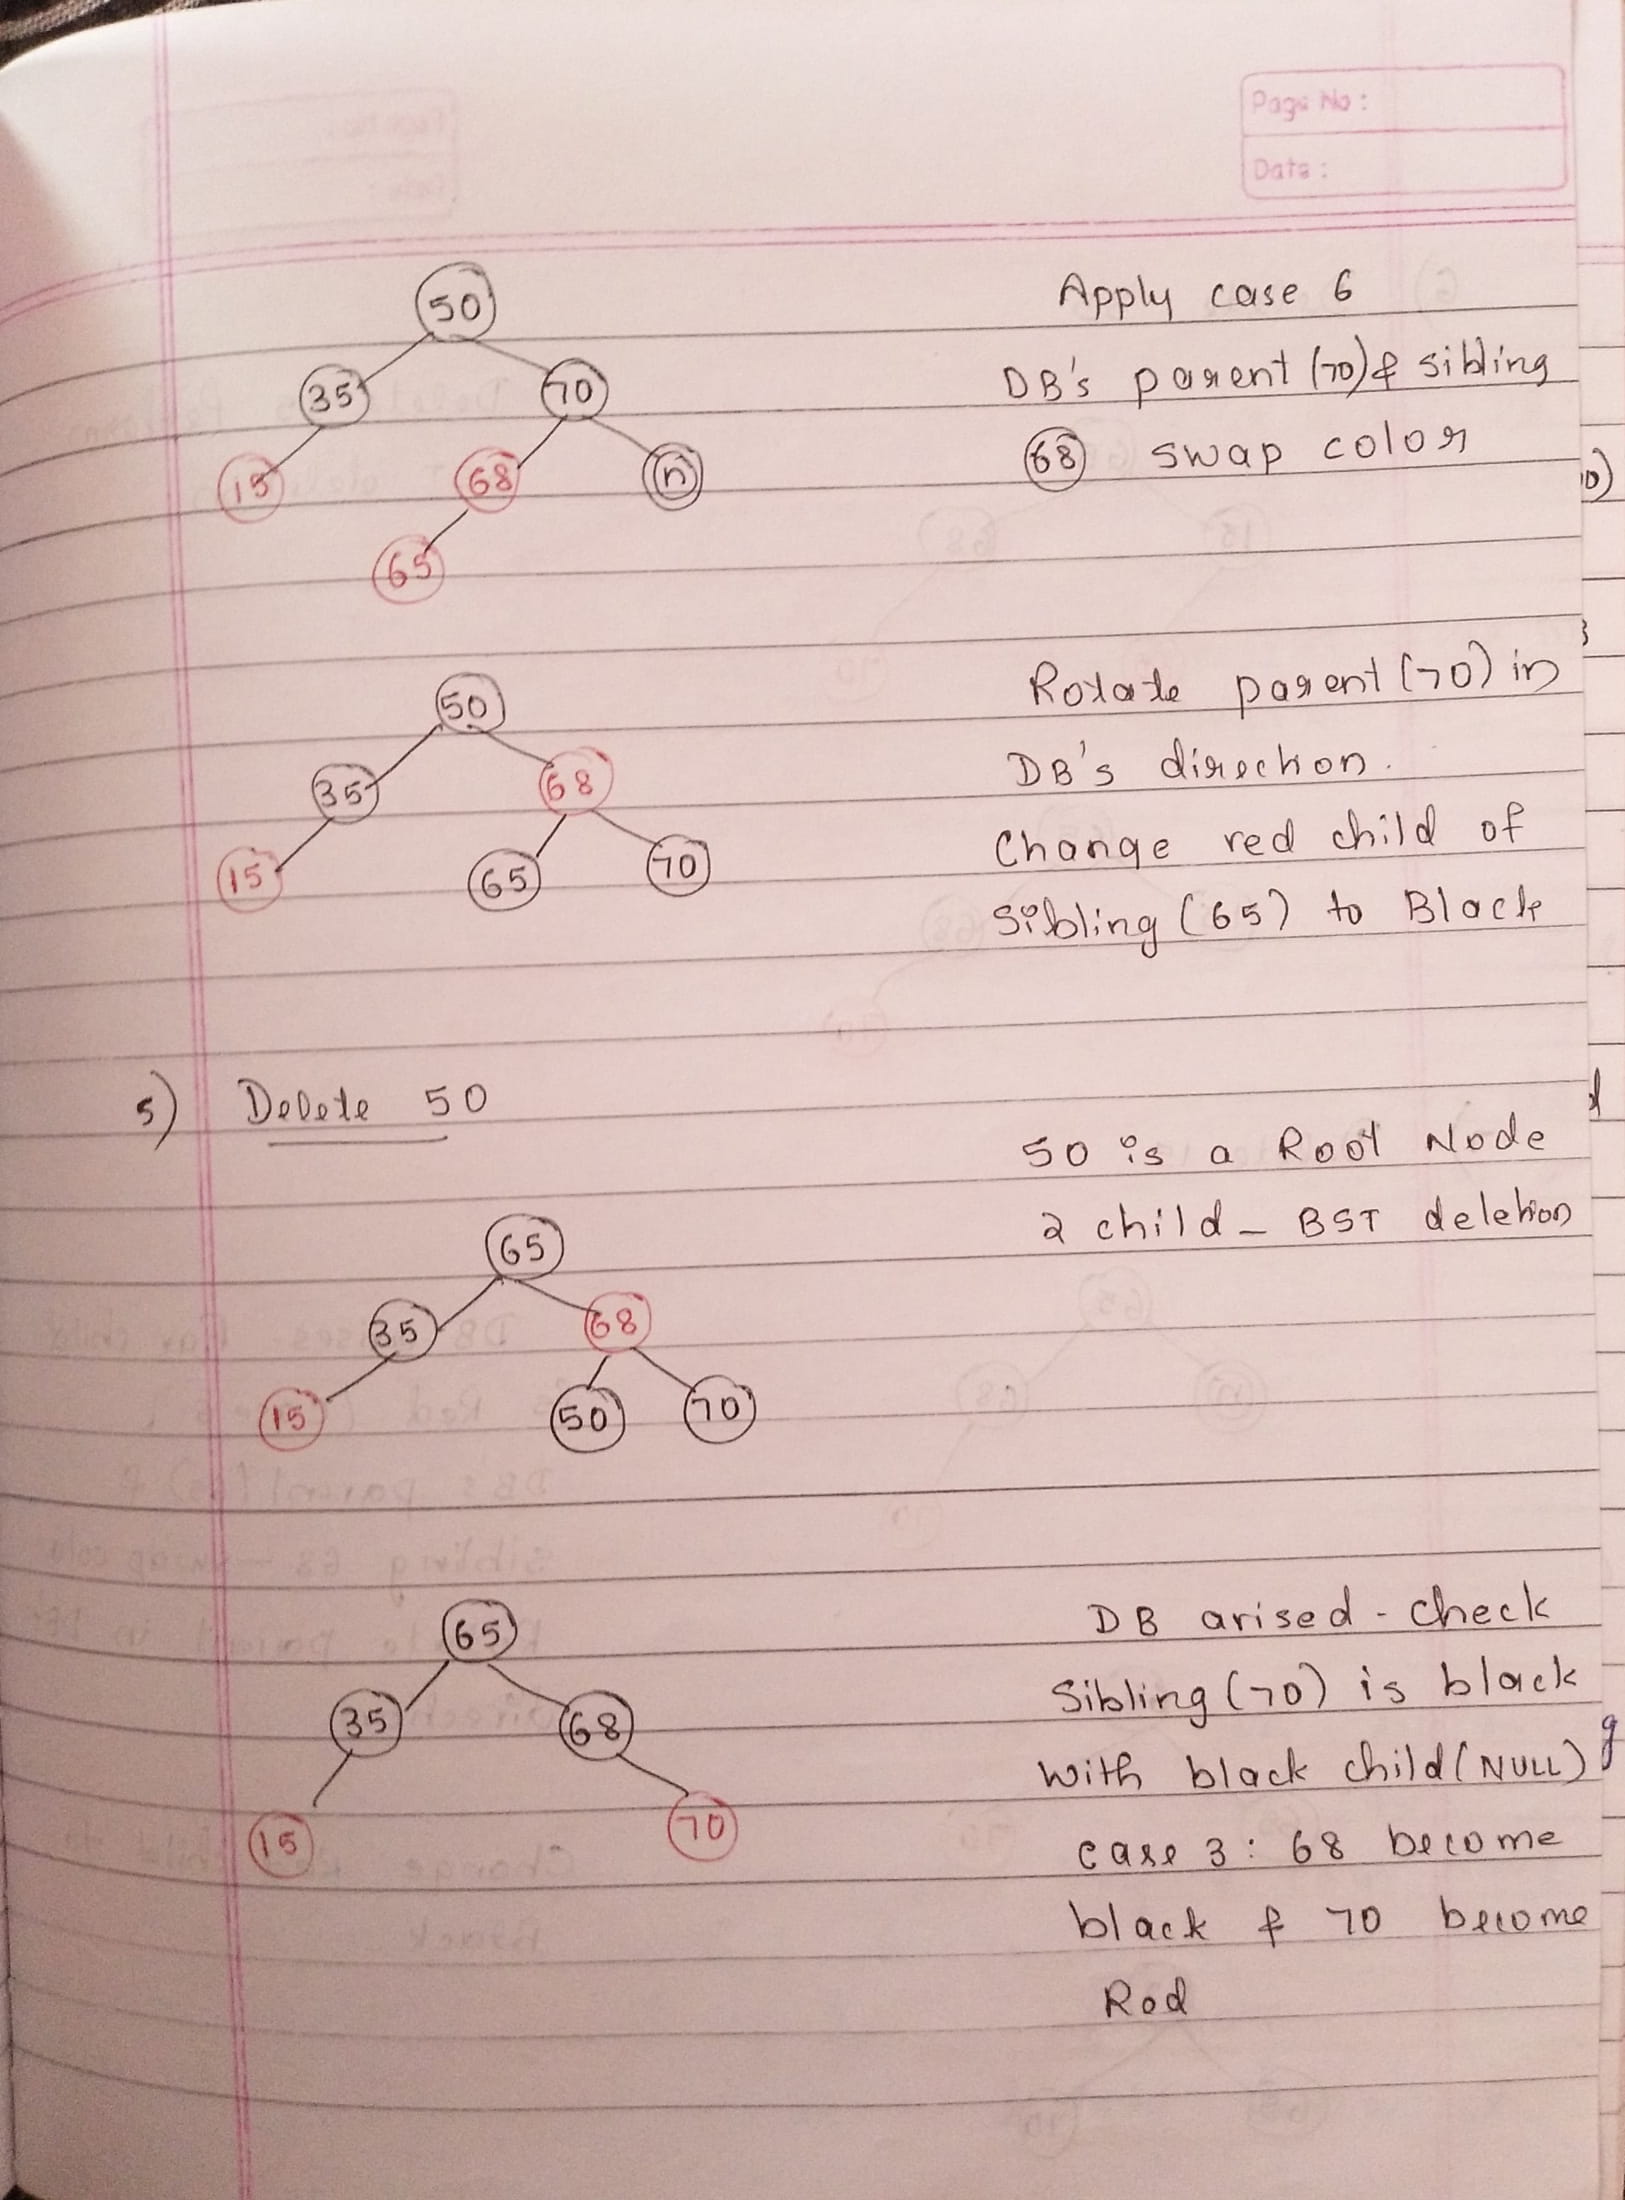 Page No :
Date :
50
Apply case 6
35 70
DB's parent (70) & sibling
15 68 n
68 swap color
65
50
Rotate parent (70) in
35 68
DB's direction.
15 65 70
Change red child of
Sibling (65) to Black
5) Delete 50
50 is a Root Node
2 child - BST deletion
65
35 68
15 50 70
65
DB arised - check
35 68
Sibling (70) is black
With black child (NULL)
15 70
case 3 : 68 become
black & 70 become
Red